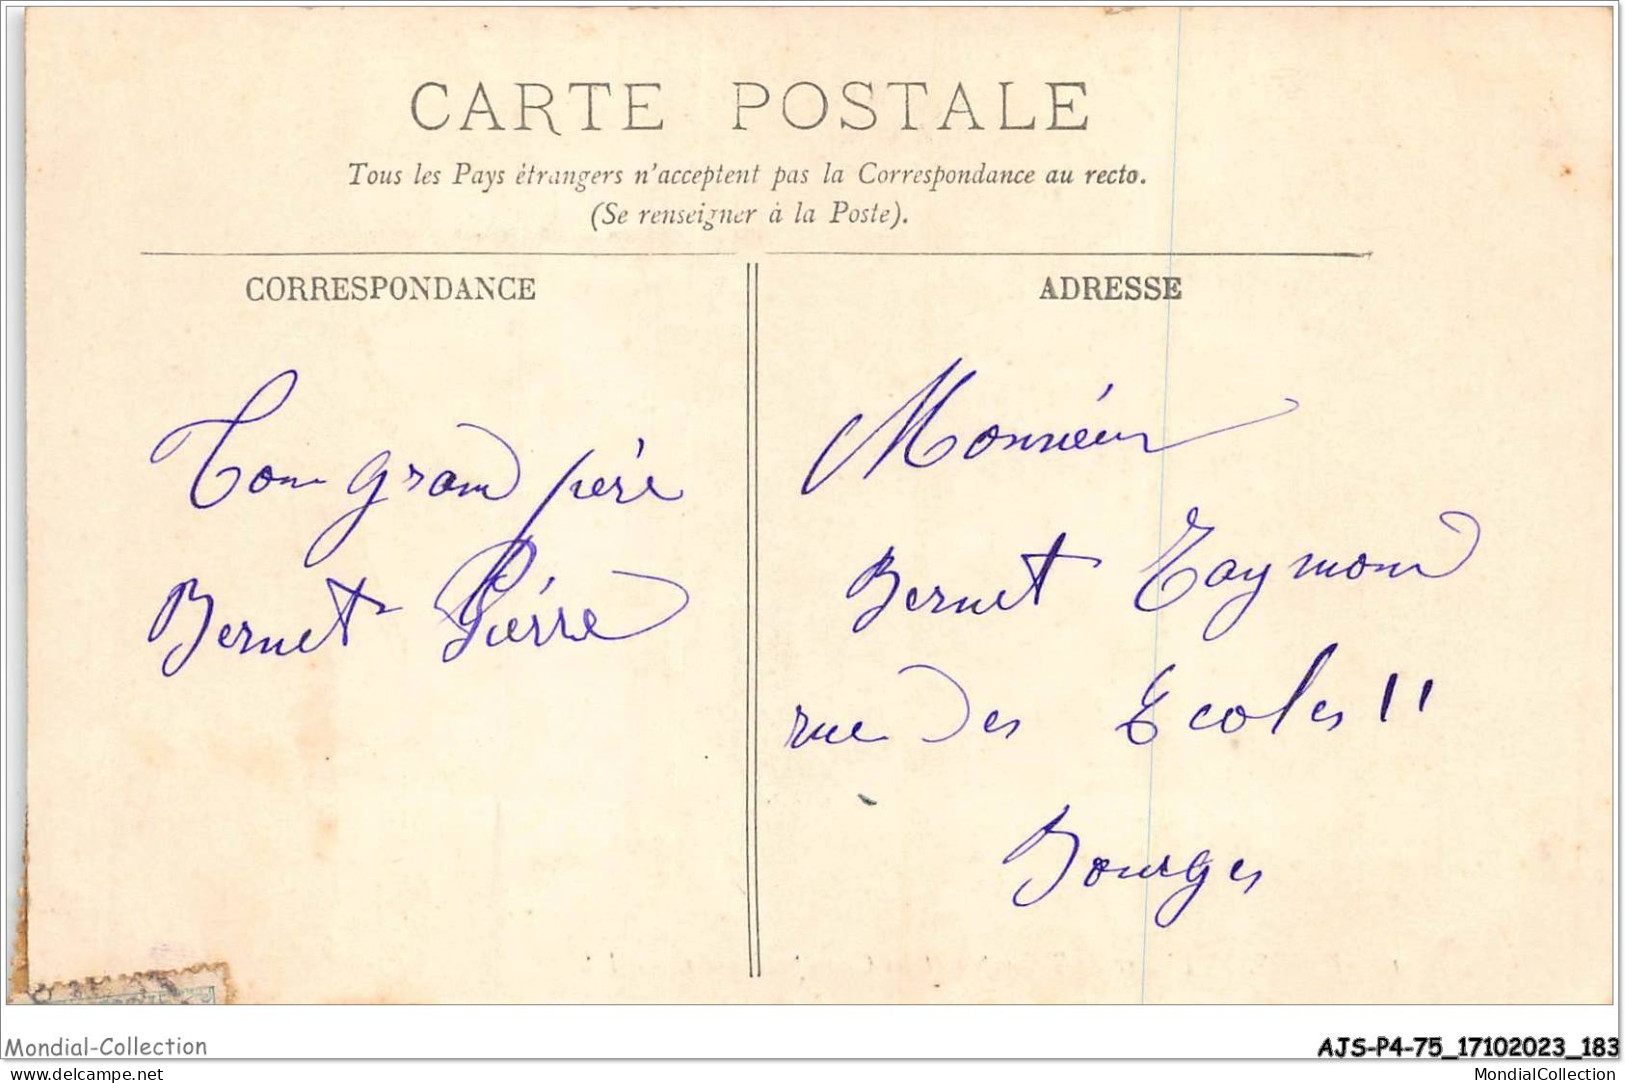 CARTE POSTALE
Tous les Pays étrangers n'acceptent pas la Correspondance au recto.
(Se renseigner à la Poste).
CORRESPONDANCE
ADRESSE
Ton grand père
Bernet Pierre
Monsieur
Bernet Raymond
rue des Ecoles 11
Bourges
Mondial-Collection
AJS-P4-75_17102023_183
delcampe.net
MondialCollection